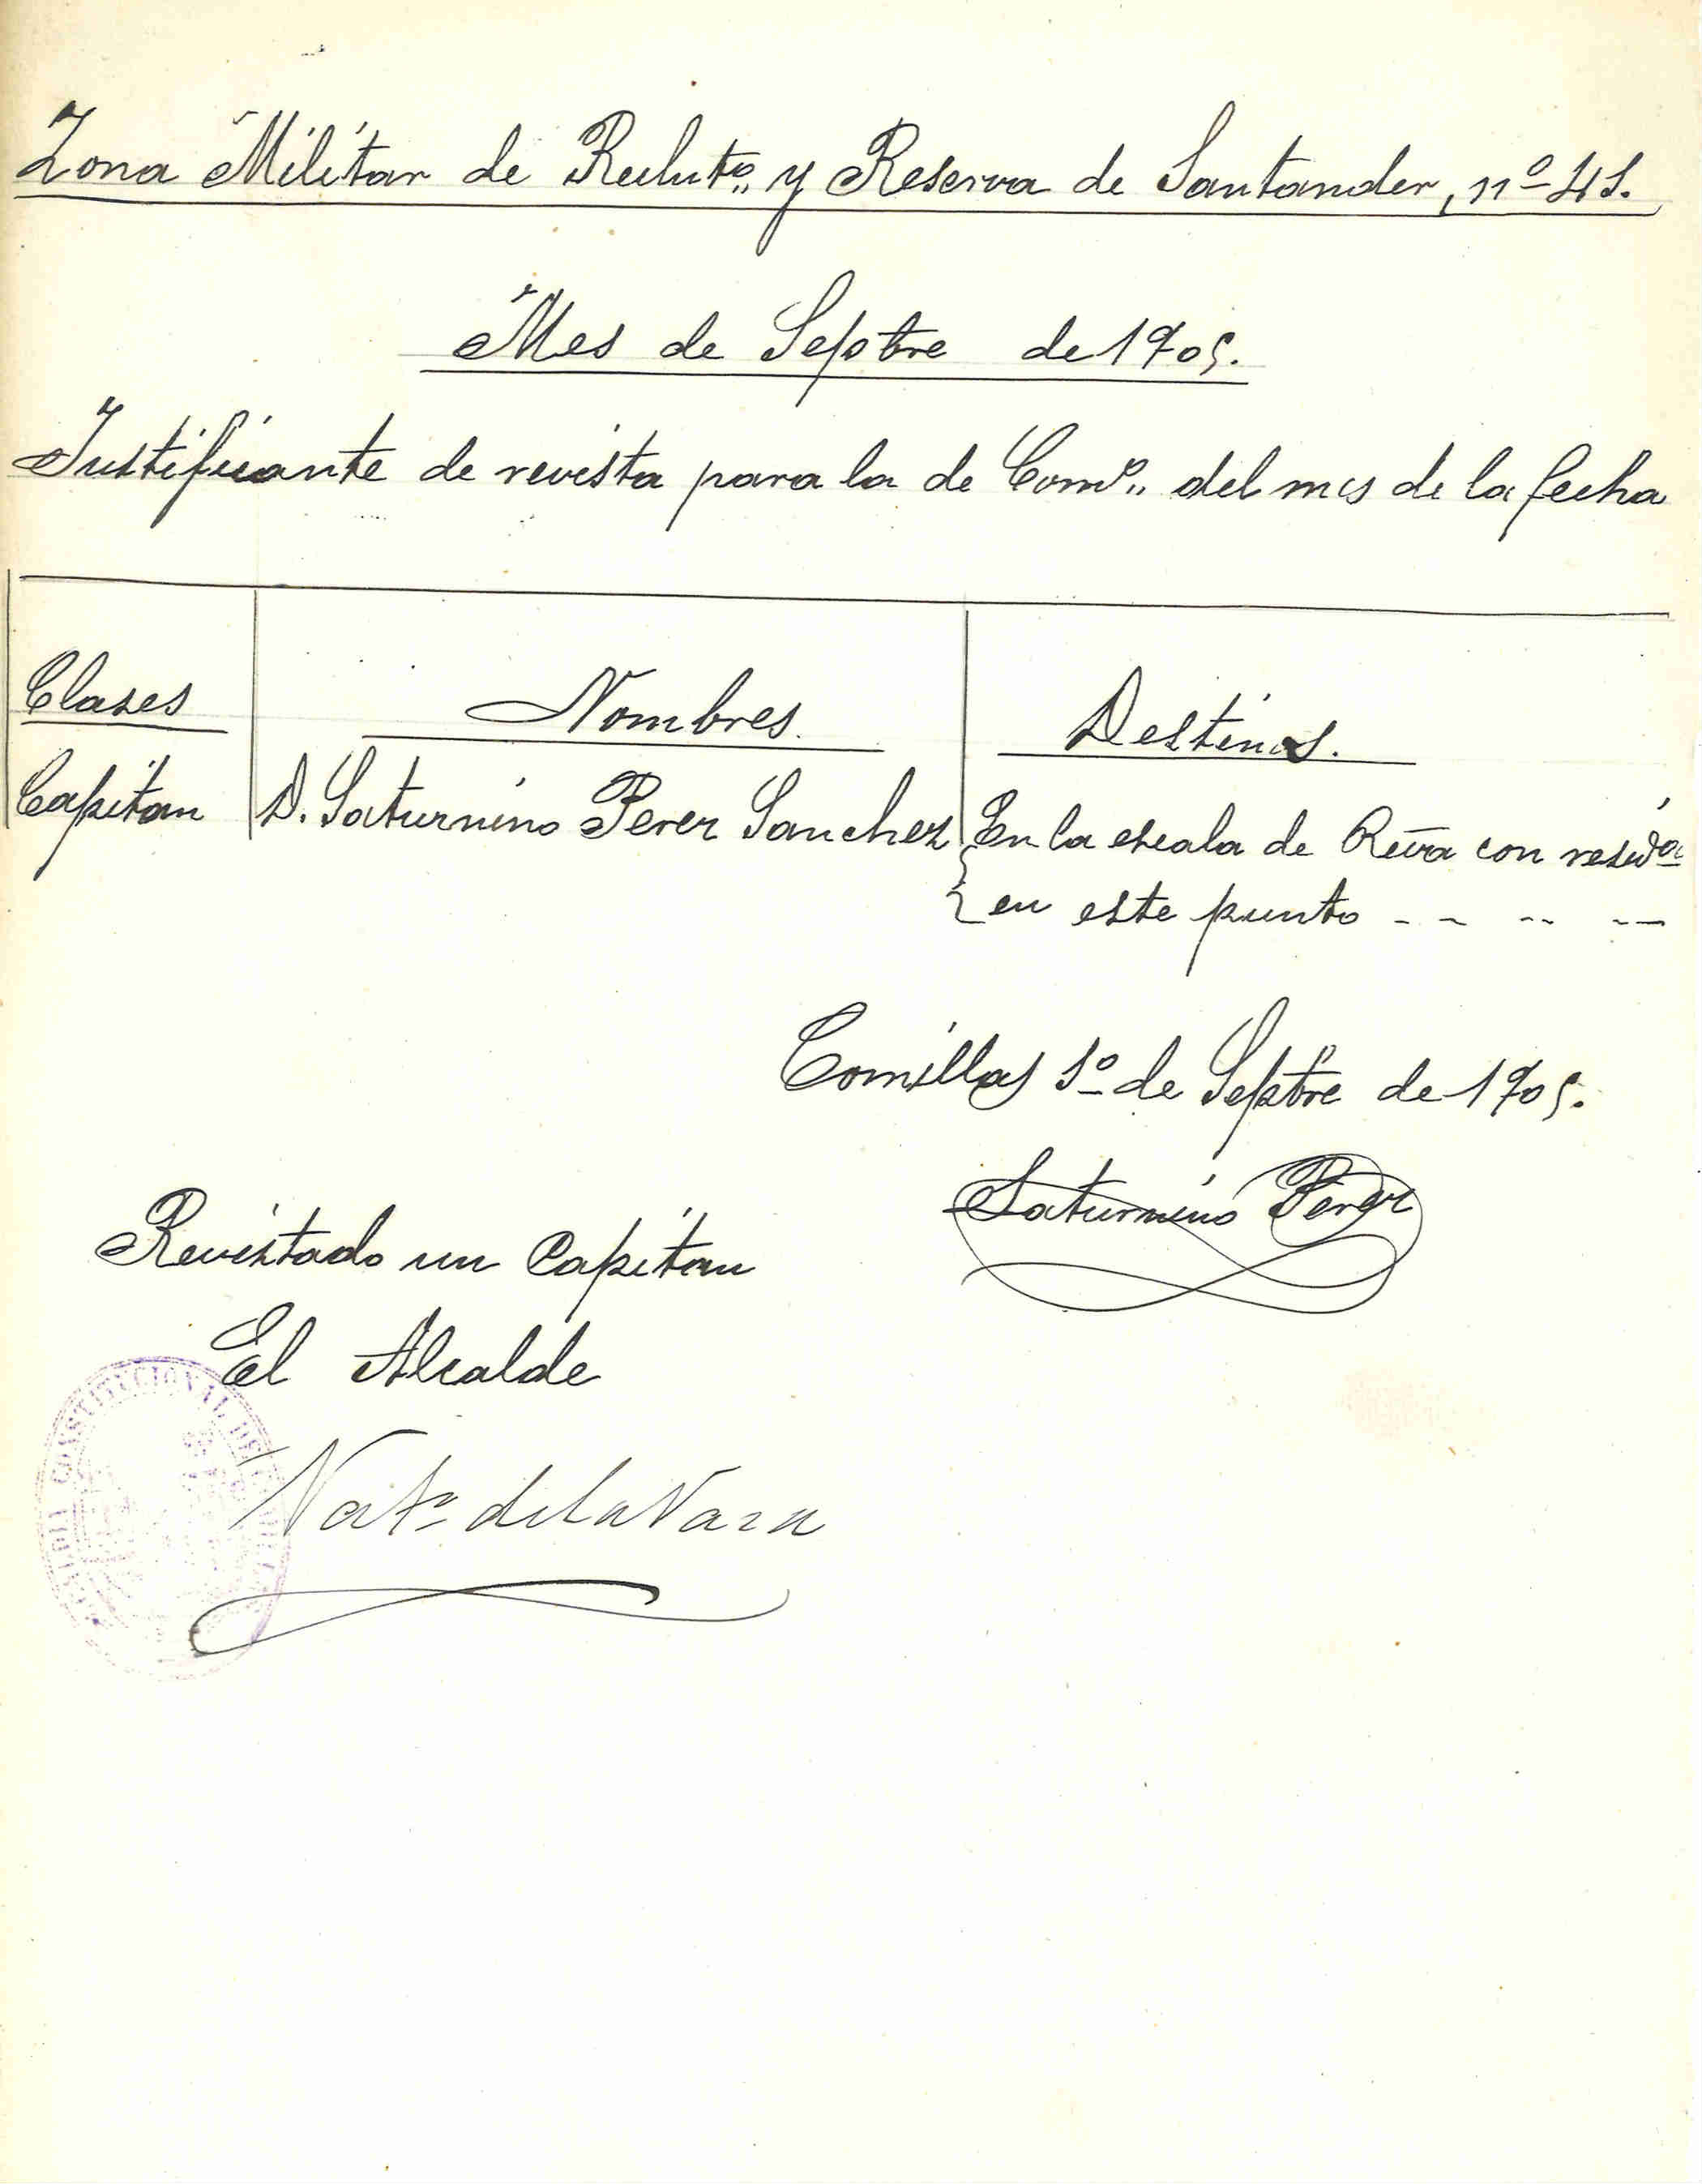 Zona Militar de Reclutº y Reserva de Santander, nº 41.
Mes de Septbre de 1905.
Justificante de revista para la de Comº del mes de la fecha
Clases Nombres. Destinos.
Capitan D. Saturnino Perez Sanchez En la escala de Rvª con residª
en este punto - - - -
Comillas 1º de Septbre de 1905.
Saturnino Perez
Revistado un Capitan
El Alcalde
CONSTITUCIONAL DE
de la Vara